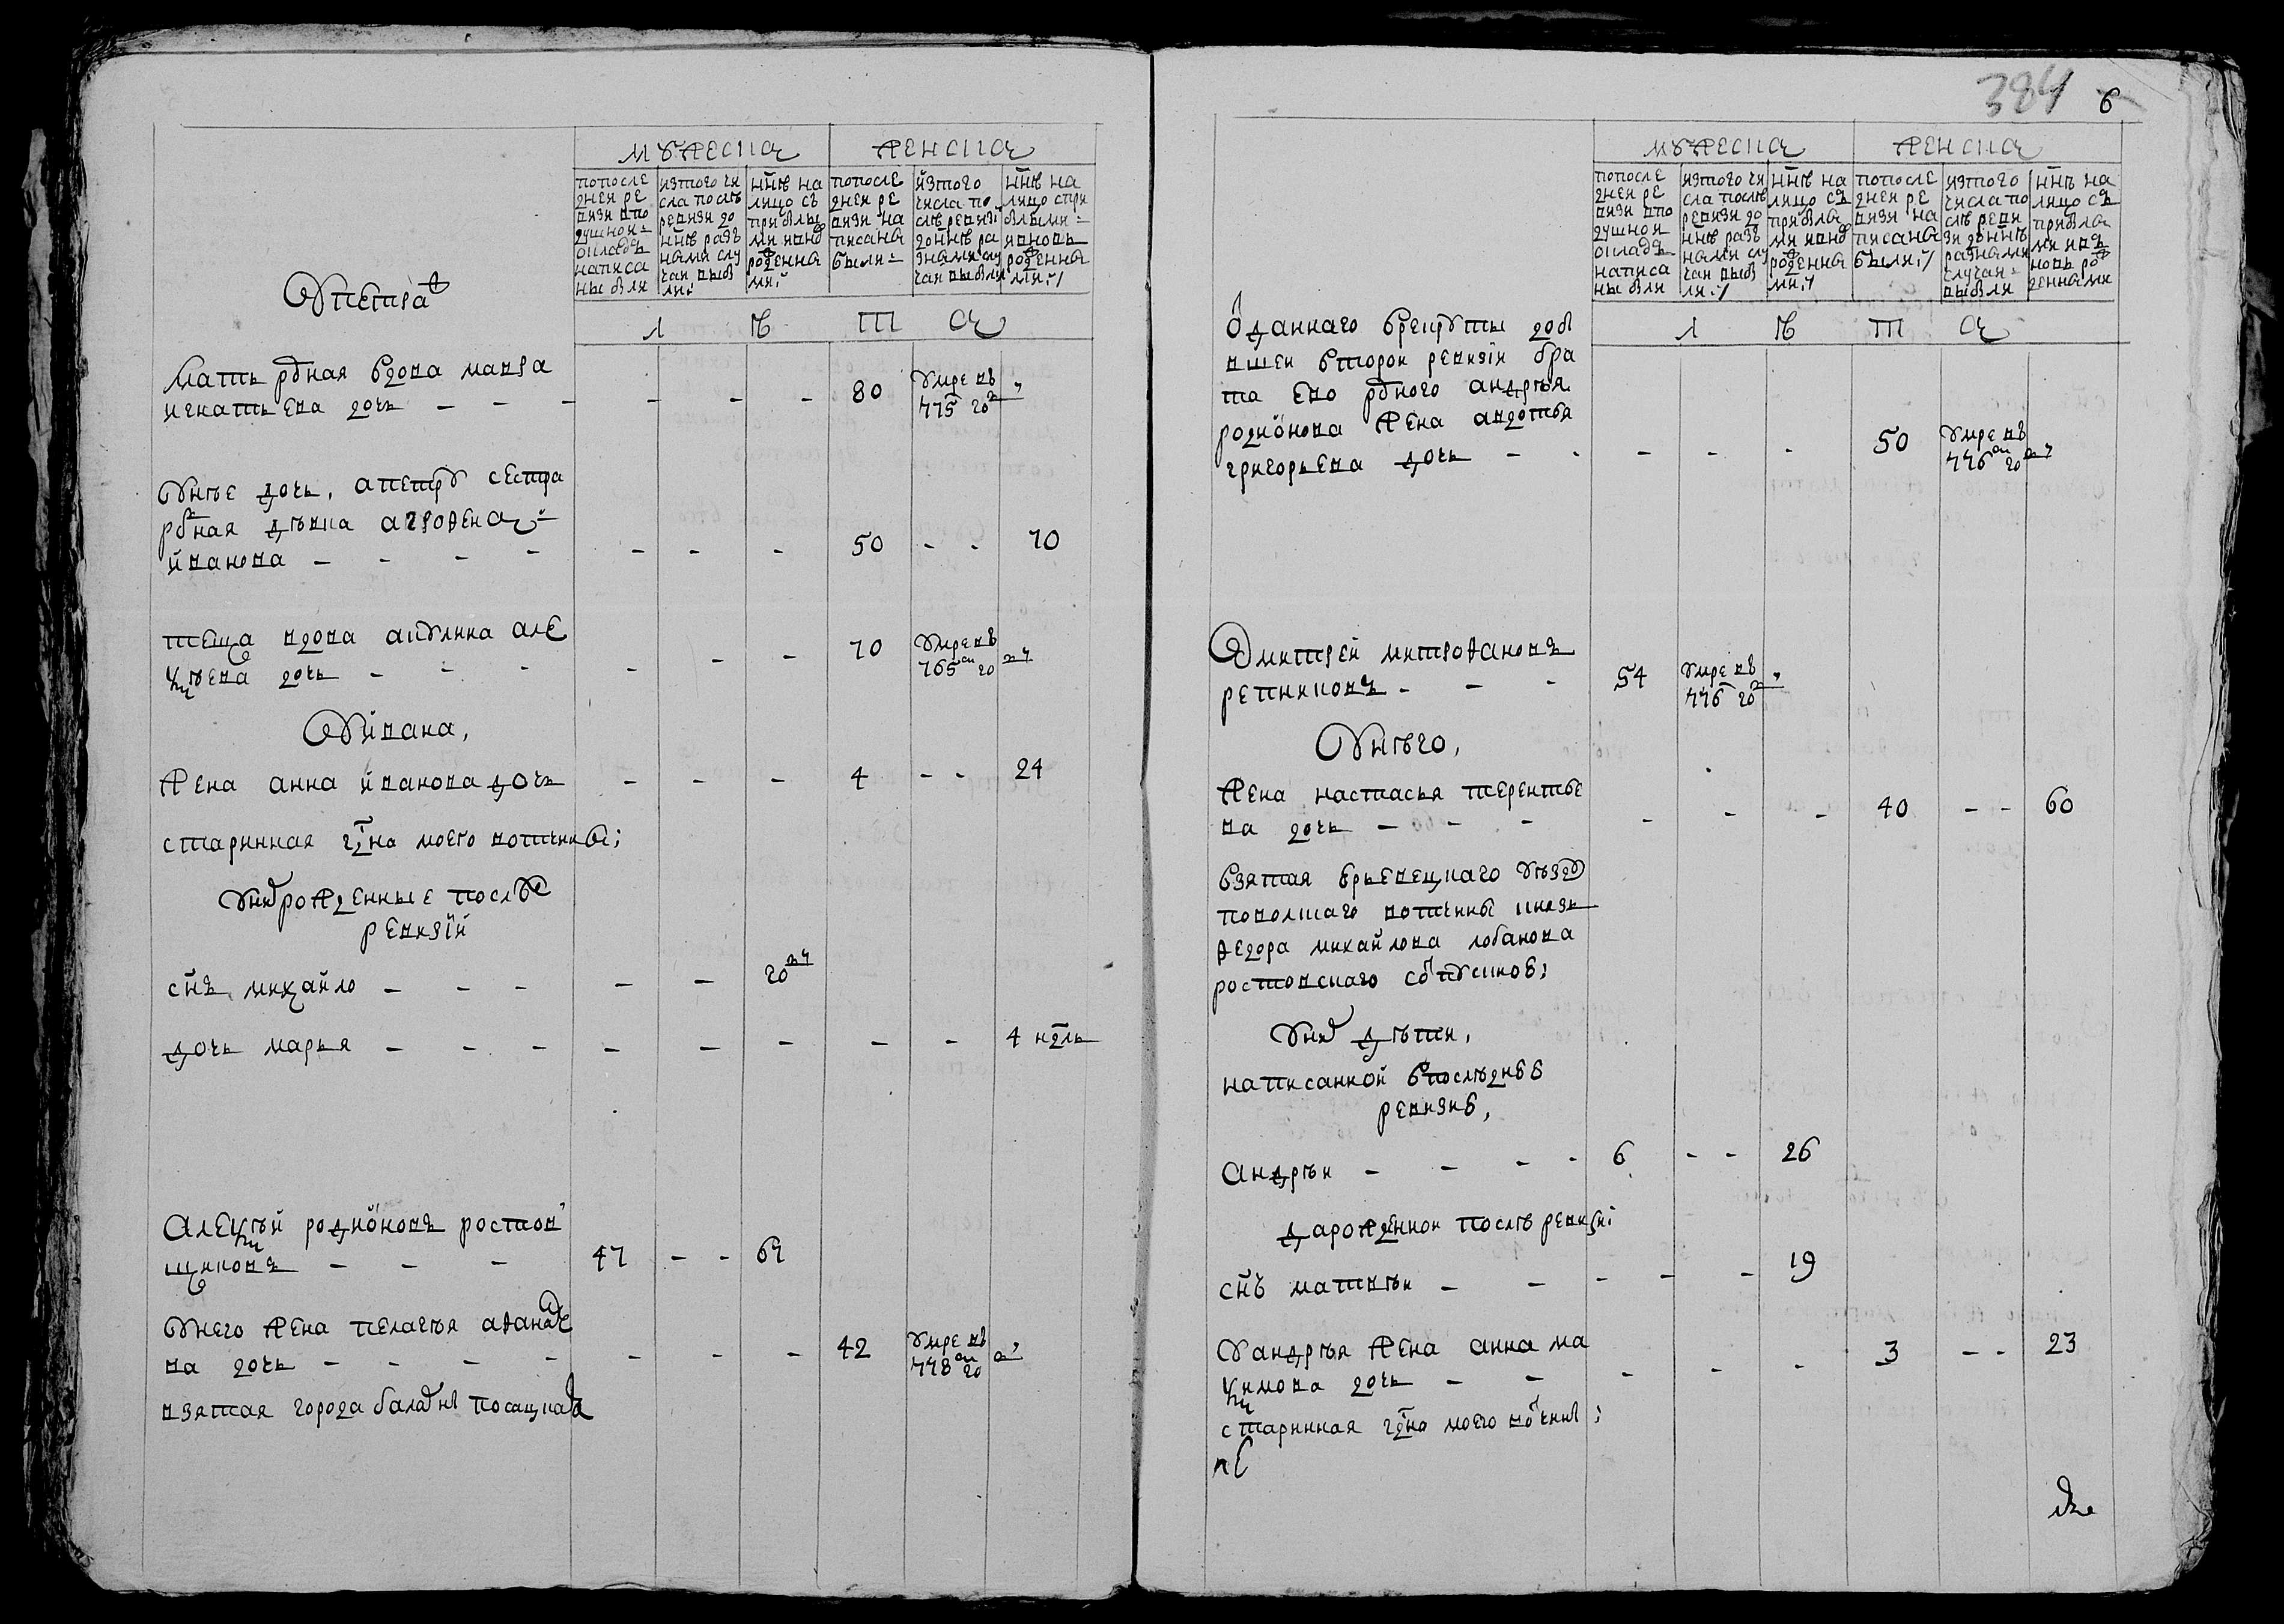 мужеска
женска
попосле
дней ре
визи впо
душной
окладъ
написа
ны бли
изтого чи
сла послѣ
ревизи до
ннѣ разъ
ными слу
чаи выбы
ли:
ннѣ на
лицо съ
прибылы
ми ивно
рожденны
ми:
попосле
дней ре
визи на
писаны
были
изтого
числа по
слѣ ревизі
доннѣ ра
зными слу
чаи выбыли
ннѣ на
лицо спри
былыми
ивновь
рожденны
ми:/
л ѣ т а
Упетра
мать рдная вдова мавра
игнатьева дочь - - - - - - 80 умре въ 775 го
Унее дочь, апетру сестра
рдная девка аграфена
ивановa - - - - - - - 50 - - 70
теща вдова акулина але
ксѣева дочь - - - - - - 70 умре въ 765 го
Уивана,
жена анна иванова дочь - - - 4 - - 24
старинная гдна моего вотчины;
Унихрожденные послѣ
ревизіи
снъ михайло - - - - - год
дочь марья - - - - - - - - 4 ндль
Алексѣй родионовъ ростов
щиковъ - - - 47 - - 67
Унего жена пелагѣя афанасе
ва дочь - - - - - - - 42 умре въ 778 го
взятая города балахны посацкая
384 6
мужеска
женска
попосле
дней ре
визи впо
душной
окладъ
написа
ны бли
изтого чи
сла послѣ
ревизи до
ннѣ разъ
ными слу
чаи выбы
ли:/
ннѣ на
лицо съ
прибылы
ми ивно
рожденны
ми:/
попосле
дней ре
визи на
писаны
были:/
изтого
числа по
слѣ реви
зи доннѣ
разными
случаи
выбыли
ннѣ на
лицо съ
прибылы
ми ивъ
новь рож
денными
л ѣ т а
Отданнаго врекруты доб
вшей второй ревизіи бра
та ево рднoго андрѣя
родионова жена авдотья
григорьева дочь - - - - - 50 умре въ 776 го
Дмитрей митрофановъ
репниковъ - - - 54 умре въ 776 го
Унѣго,
жена настасья терентье
ва дочь - - - - - - 40 - - 60
взятая врьевецкаго уѣзду
поволшаго вотчины князь
федора михайлова лобанова
ростовскаго
Уних дѣти,
написанной впослѣдней
ревизие,
Андрѣй - - - - 6 - - 26
дарожденной послѣ ревизіи
снъ матвѣй - - - - - 19
Уандрѣя жена анна ма
ксимова дочь - - - - - 3 - - 23
старинная гдна моего вотчины;